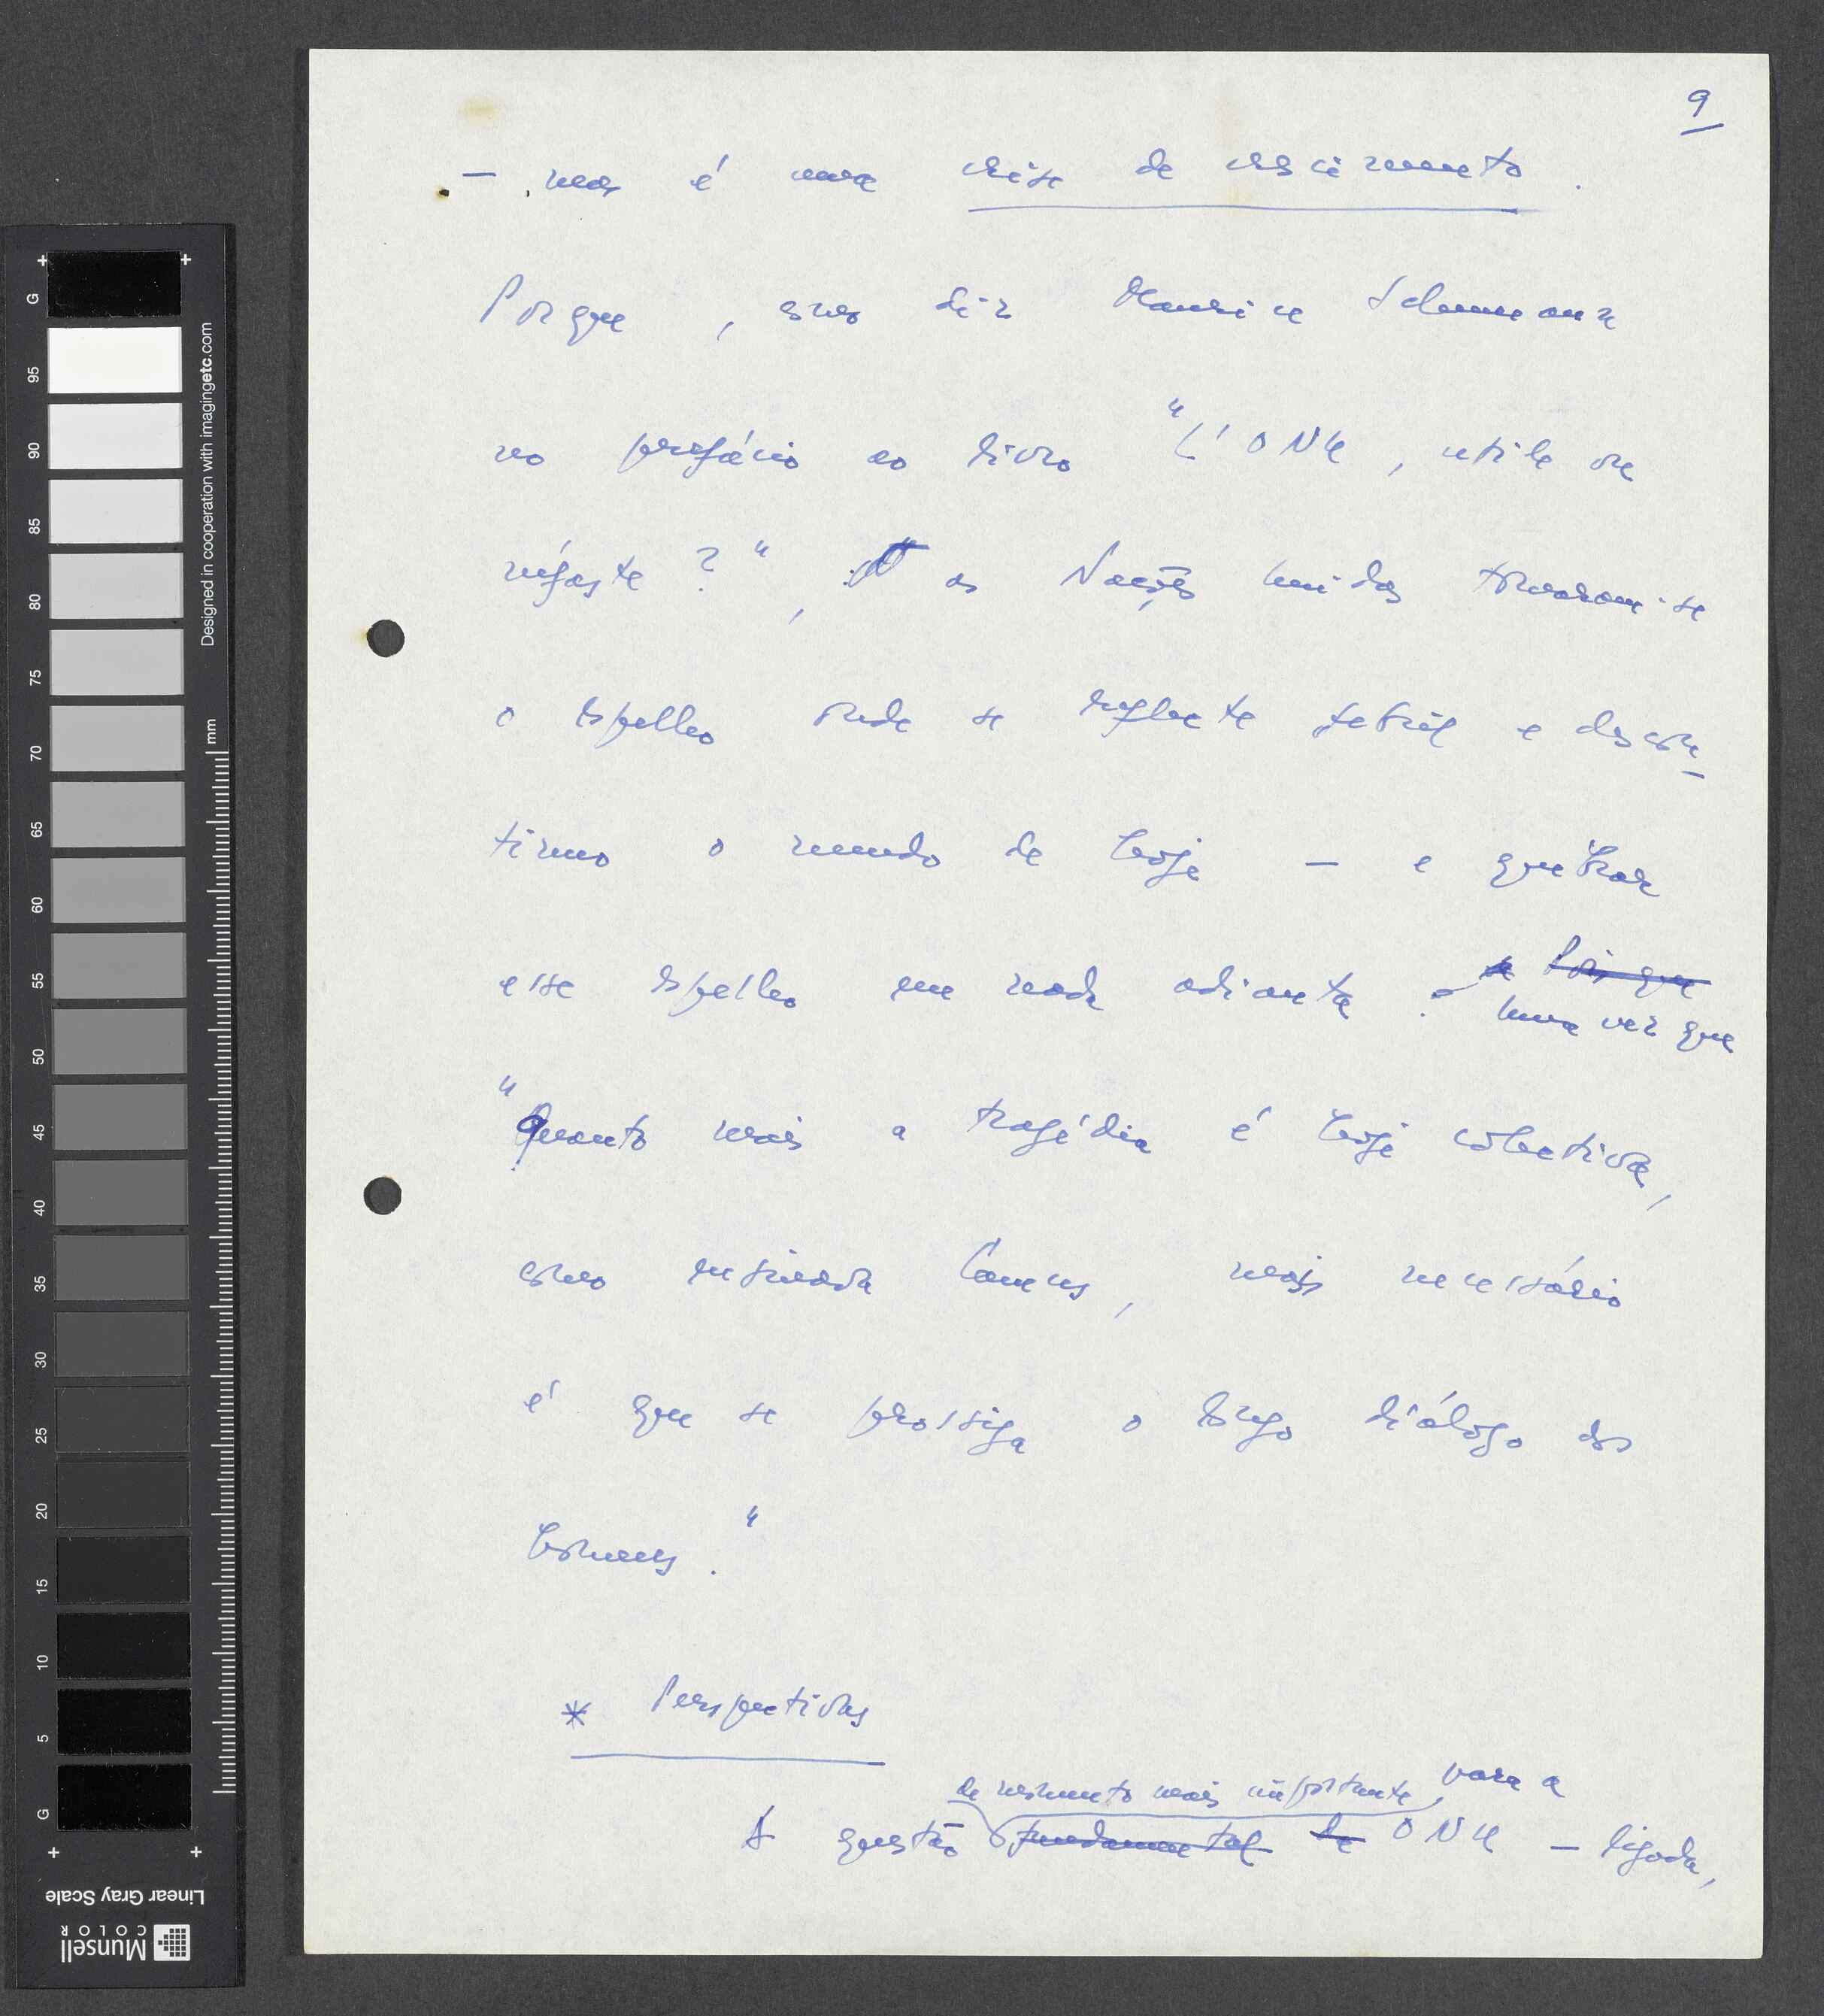 9
— mas é uma crise de crescimento.
Porque, como diz Maurice Schumann
no prefácio ao livro "L'ONU, utile ou
néfaste?", as Nações Unidas tornaram-se
o espelho onde se reflecte febril e descon-
tínuo o mundo de hoje — e quebrar
esse espelho em nada adianta. Pois que
Uma vez que
"Quanto mais a tragédia é hoje colectiva,
como ensinava Camus, mais necessário
é que se prossiga o longo diálogo dos
homens."
* Perspectivas
de momento mais importante, para a
A questão fundamental da ONU — ligada,
G
95
90
85
80
75
70
65
60
55
50
45
40
35
30
25
20
15
10
5
G
Designed in cooperation with imagingetc.com
mm
Linear Gray Scale
Munsell
COLOR